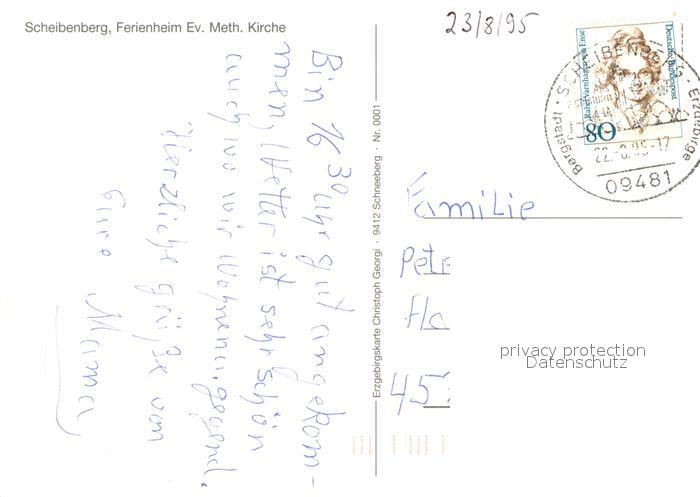 Scheibenberg, Ferienheim Ev. Meth. Kirche
23/8/95
Bin 16 30 Uhr gut angekom-
men, Wetter ist sehr schön
auch wo wir Wohnen u. gegend.
Herzliche grüße von
Eure Mama
Erzgebirgskarte Christoph Georgi · 9412 Schneeberg · Nr. 0001
Deutsche Bundespost
Rahel Varnhagen von Ense
80
Bergstadt · SCHEIBENBERG · Erzgebirge
09481
Familie
Petr
Ha
45
privacy protection
Datenschutz